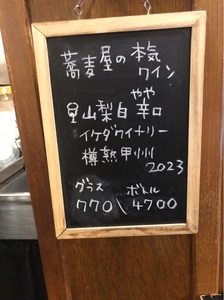 蕎麦屋の本気
ワイン
やや
山梨白 辛口
イケダワイナリー
樽熟甲州
2023
グラス ボトル
770\4700